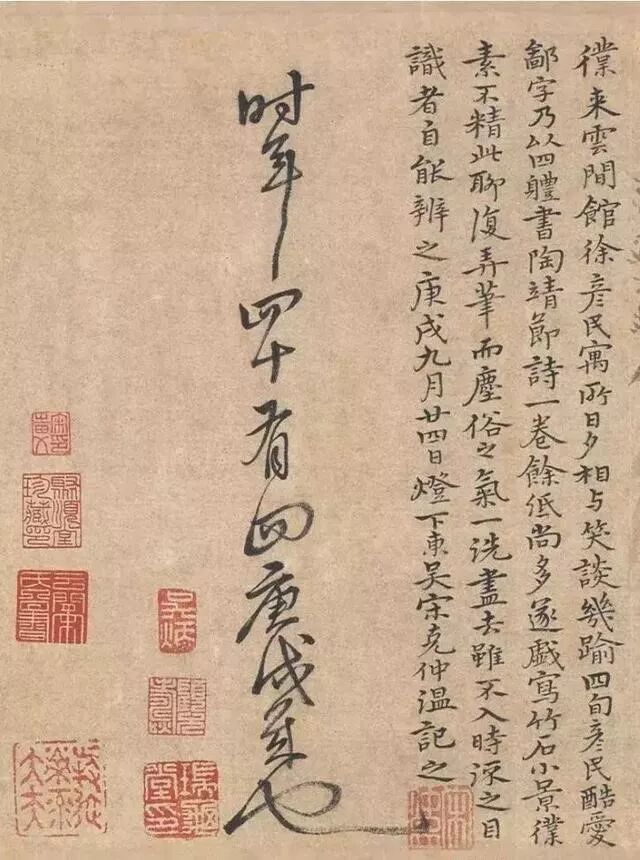 僕来雲間館徐彦民寓所日夕相与笑談幾踰四旬彦民酷愛
鄙字乃以四體書陶靖節詩一卷餘紙尚多遂戲寫竹石小景僕
素不精此聊復弄筆而塵俗之氣一洗盡去雖不入時流之目
識者自能辨之庚戌九月廿四日燈下東吳宋克仲温記之
时年四十有四庚戌歲也